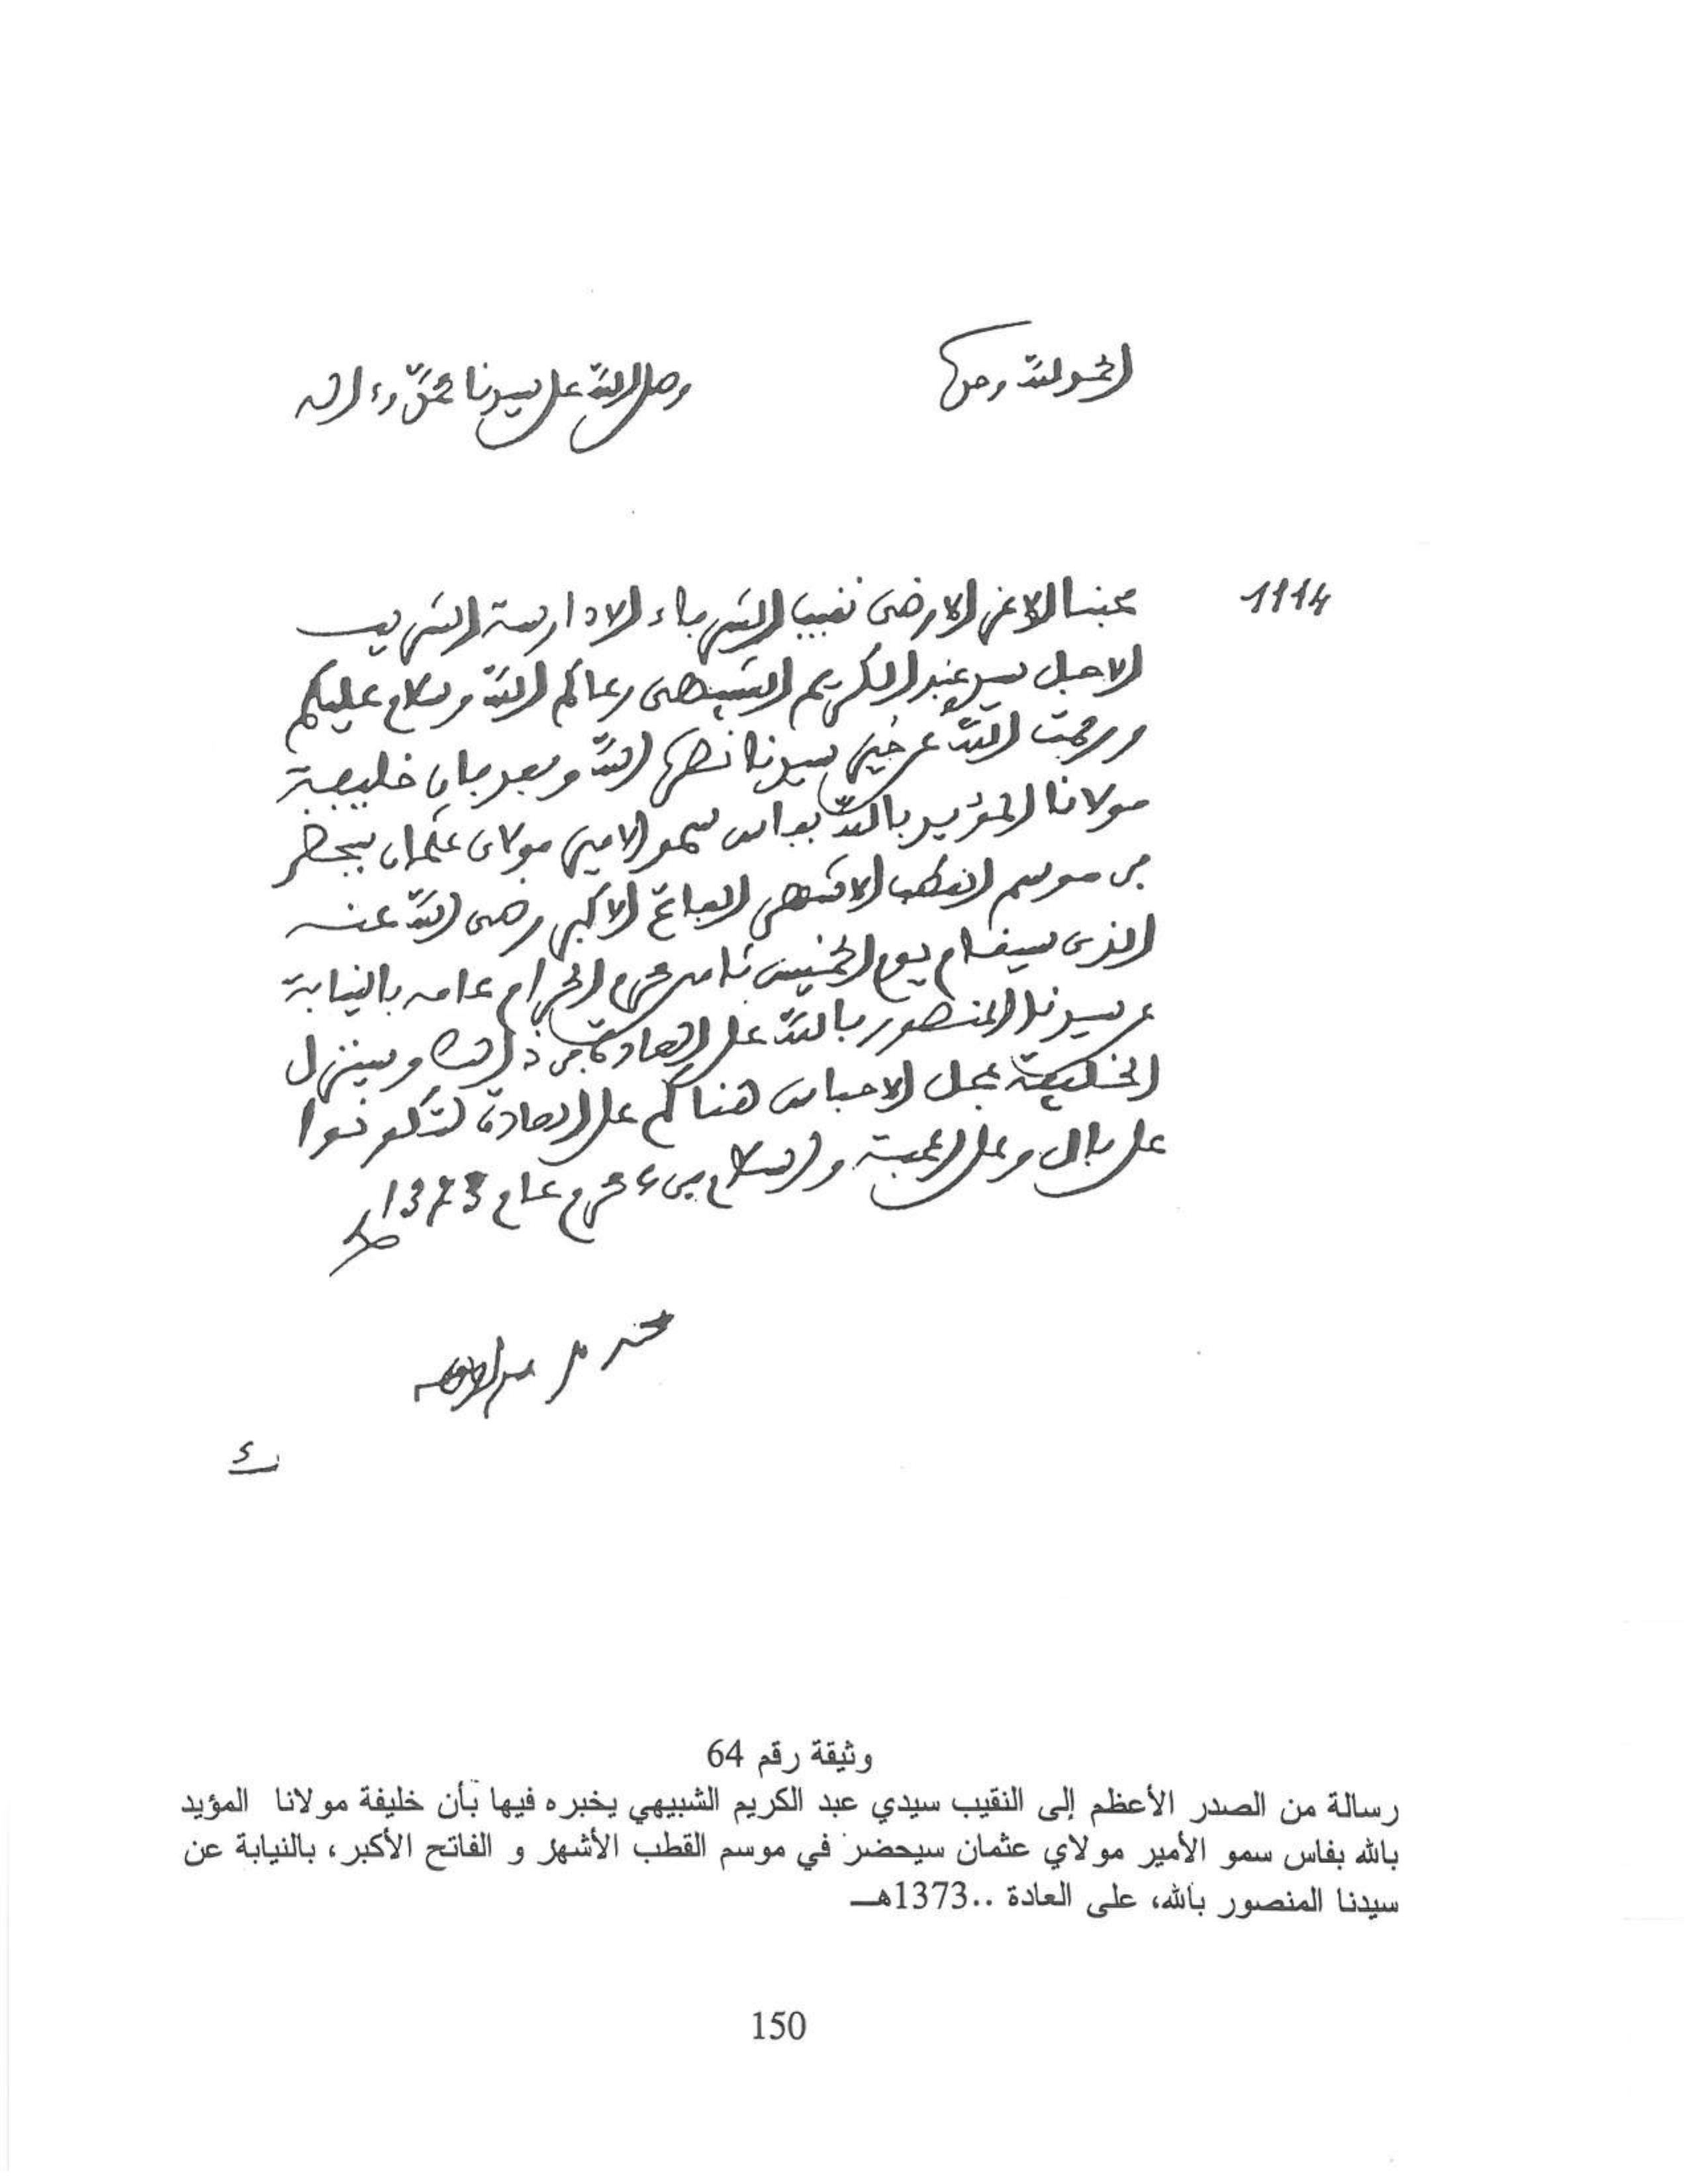 الحمد لله وحده
وصلى الله على سيدنا محمد وءاله
1114
محبنا الاعز الارضى نقيب الشرفاء الادارسة الشريف
الاجل سيدي عبد الكريم الشبيهي رعاكم الله وسلام عليكم
ورحمت الله عن خير سيدنا نصره الله وبعد فان خليفة
مولانا المؤيد بالله بفاس سمو الامير مولاي عثمان سيحضر
في موسم القطب الاشهر الفاتح الاكبر رضي الله عنه
الذي سيقام يوم الخميس ثامن محرم الحرام عامه بالنيابة
عن سيدنا المنصور بالله على العادة في ذلك وسينزل
الخليفة بمحل الاحباس هناكم على العادة لتكونوا
على بال وعلى المحبة والسلام في محرم عام 1373
محمد
وثيقة رقم 64
رسالة من الصدر الأعظم إلى النقيب سيدي عبد الكريم الشبيهي يخبره فيها بأن خليفة مولانا المؤيد
بالله بفاس سمو الأمير مولاي عثمان سيحضر في موسم القطب الأشهر و الفاتح الأكبر، بالنيابة عن
سيدنا المنصور بالله، على العادة ..1373هـ
150